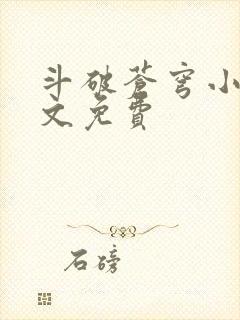 斗破蒼穹小
文免費
石磅